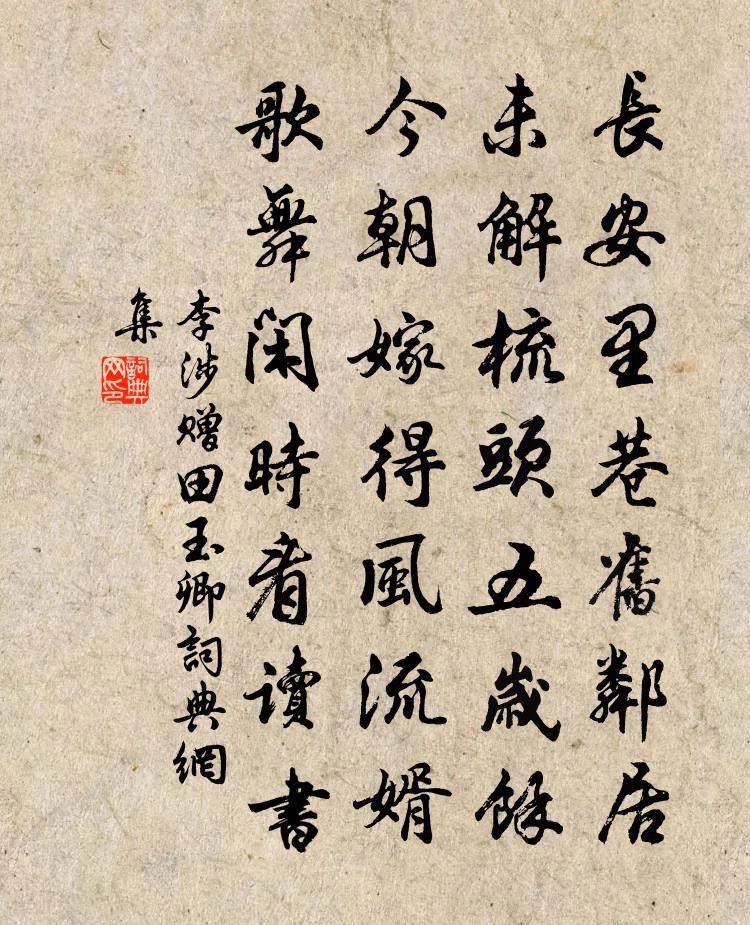 長安里巷舊鄰居
未解梳頭五歲餘
今朝嫁得風流婿
歌舞閑時看讀書
李涉贈田玉卿詞典網
集
詞典
网印